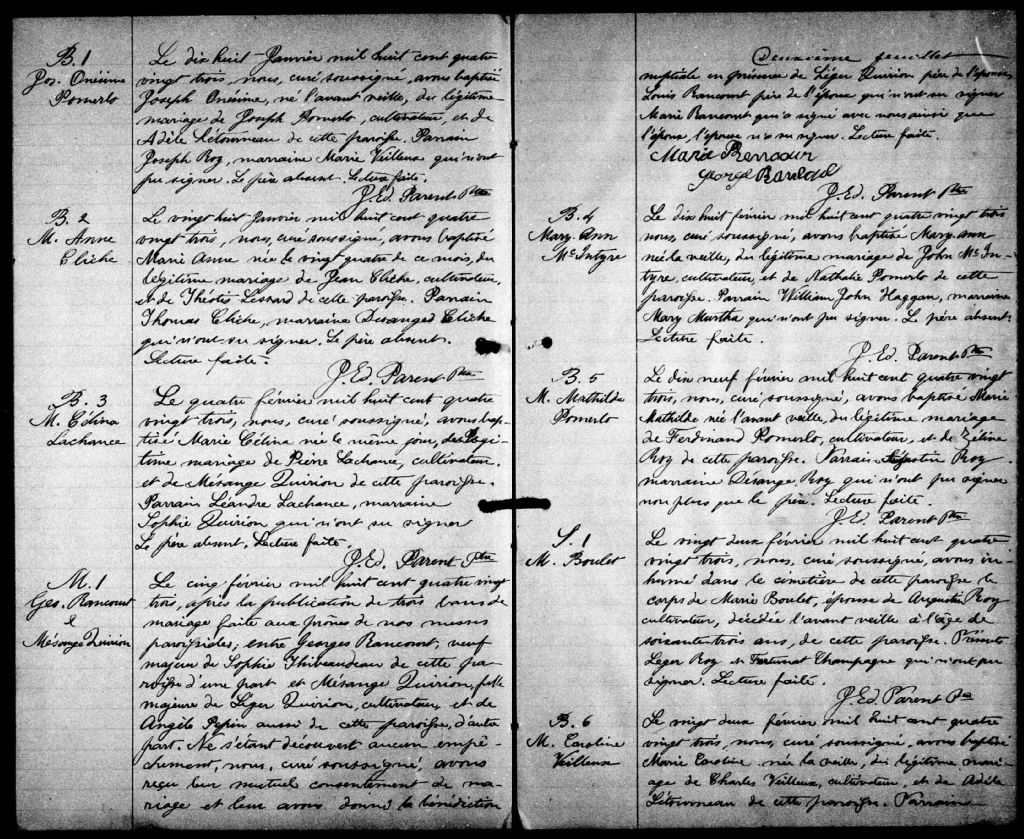 B. 1
Jos. Onésime
Pomerlo
Le dix huit Janvier mil huit cent quatre
vingt trois, nous, curé soussigné, avons baptisé
Joseph Onésime, né l'avant veille, du légitime
mariage de Joseph Pomerlo, cultivateur, et de
Adèle Létourneau de cette paroisse. Parrain
Joseph Roy, marraine Marie Veilleux qui n'ont
pu signer. Le père absent. Lecture faite.
J. Ed. Parent Ptre
B. 2
M. Anne
Cliche
Le vingt huit Janvier mil huit cent quatre
vingt trois, nous, curé soussigné, avons baptisé
Marie Anne née le vingt quatre de ce mois, du
légitime mariage de Jean Cliche, cultivateur,
et de Théotis Lessard de cette paroisse. Parrain
Thomas Cliche, marraine Desanges Cliche
qui n'ont su signer. Le père absent.
Lecture faite.
J. Ed. Parent Ptre
B. 3
M. Célina
Lachance
Le quatre février mil huit cent quatre
vingt trois, nous, curé soussigné, avons bap-
tisé Marie Célina née le même jour, du légi-
time mariage de Pierre Lachance, cultivateur,
et de Mésange Quirion de cette paroisse.
Parrain Léandre Lachance, marraine
Sophie Quirion qui n'ont su signer
Le père absent. Lecture faite.
J. Ed. Parent Ptre
M. 1
Geo. Rancourt
&
Mésange Quirion
Le cinq février mil huit cent quatre vingt
trois, après la publication de trois bans de
mariage faite aux prônes de nos messes
paroissiales, entre Georges Rancourt, veuf
majeur de Sophie Thibeaudeau de cette pa-
roisse d'une part et Mésange Quirion, fille
majeure de Léger Quirion, cultivateur, et de
Angèle Pepin aussi de cette paroisse, d'autre
part. Ne s'étant découvert aucun empê-
chement, nous, curé soussigné, avons
reçu leur mutuel consentement de ma-
riage et leur avons donné la bénédiction
Deuxième feuillet
nuptiale en présence de Léger Quirion père de l'épouse,
Louis Rancourt père de l'époux qui n'ont su signer
Marie Rancourt qui a signé avec nous ainsi que
l'époux, l'épouse n'a su signer. Lecture faite.
J. Ed. Parent Ptre
B. 4
Mary Ann
McIntyre
Le dix huit février mil huit cent quatre vingt trois
nous, curé soussigné, avons baptisé Mary Ann
née la veille, du légitime mariage de John McIn-
tyre, cultivateur, et de Nathalie Pomerlo de cette
paroisse. Parrain William John Haggan, marraine
Mary Murtha qui n'ont pu signer. Le père absent.
Lecture faite.
J. Ed. Parent Ptre
B. 5
M. Mathilde
Pomerlo
Le dix neuf février mil huit cent quatre vingt
trois, nous, curé soussigné, avons baptisé Marie
Mathilde née l'avant veille, du légitime mariage
de Ferdinand Pomerlo, cultivateur, et de Zéline
Roy de cette paroisse. Parrain Augustin Roy
marraine Désange Roy qui n'ont pu signer
non plus que le père. Lecture faite.
J. Ed. Parent Ptre
S. 1
M. Boulet
Le vingt deux février mil huit cent quatre
vingt trois, nous, curé soussigné, avons in-
humé dans le cimetière de cette paroisse le
corps de Marie Boulet, épouse de Augustin Roy
cultivateur, décédée l'avant veille à l'âge de
soixante trois ans, de cette paroisse. Présents
Leger Roy et Fortunat Champagne qui n'ont pu
signer. Lecture faite.
J. Ed. Parent Ptre
B. 6
M. Caroline
Veilleux
Le vingt deux février mil huit cent quatre
vingt trois, nous, curé soussigné, avons baptisé
Marie Caroline née la veille, du légitime mari-
age de Charles Veilleux, cultivateur, et de Adèle
Létourneau de cette paroisse. Parrain